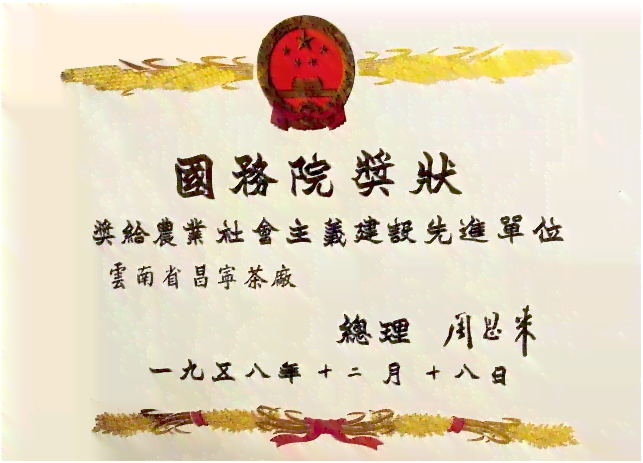 國務院獎狀
獎給農業社會主義建設先進單位
雲南省昌寧茶廠
總理 周恩來
一九五八年十二月十八日